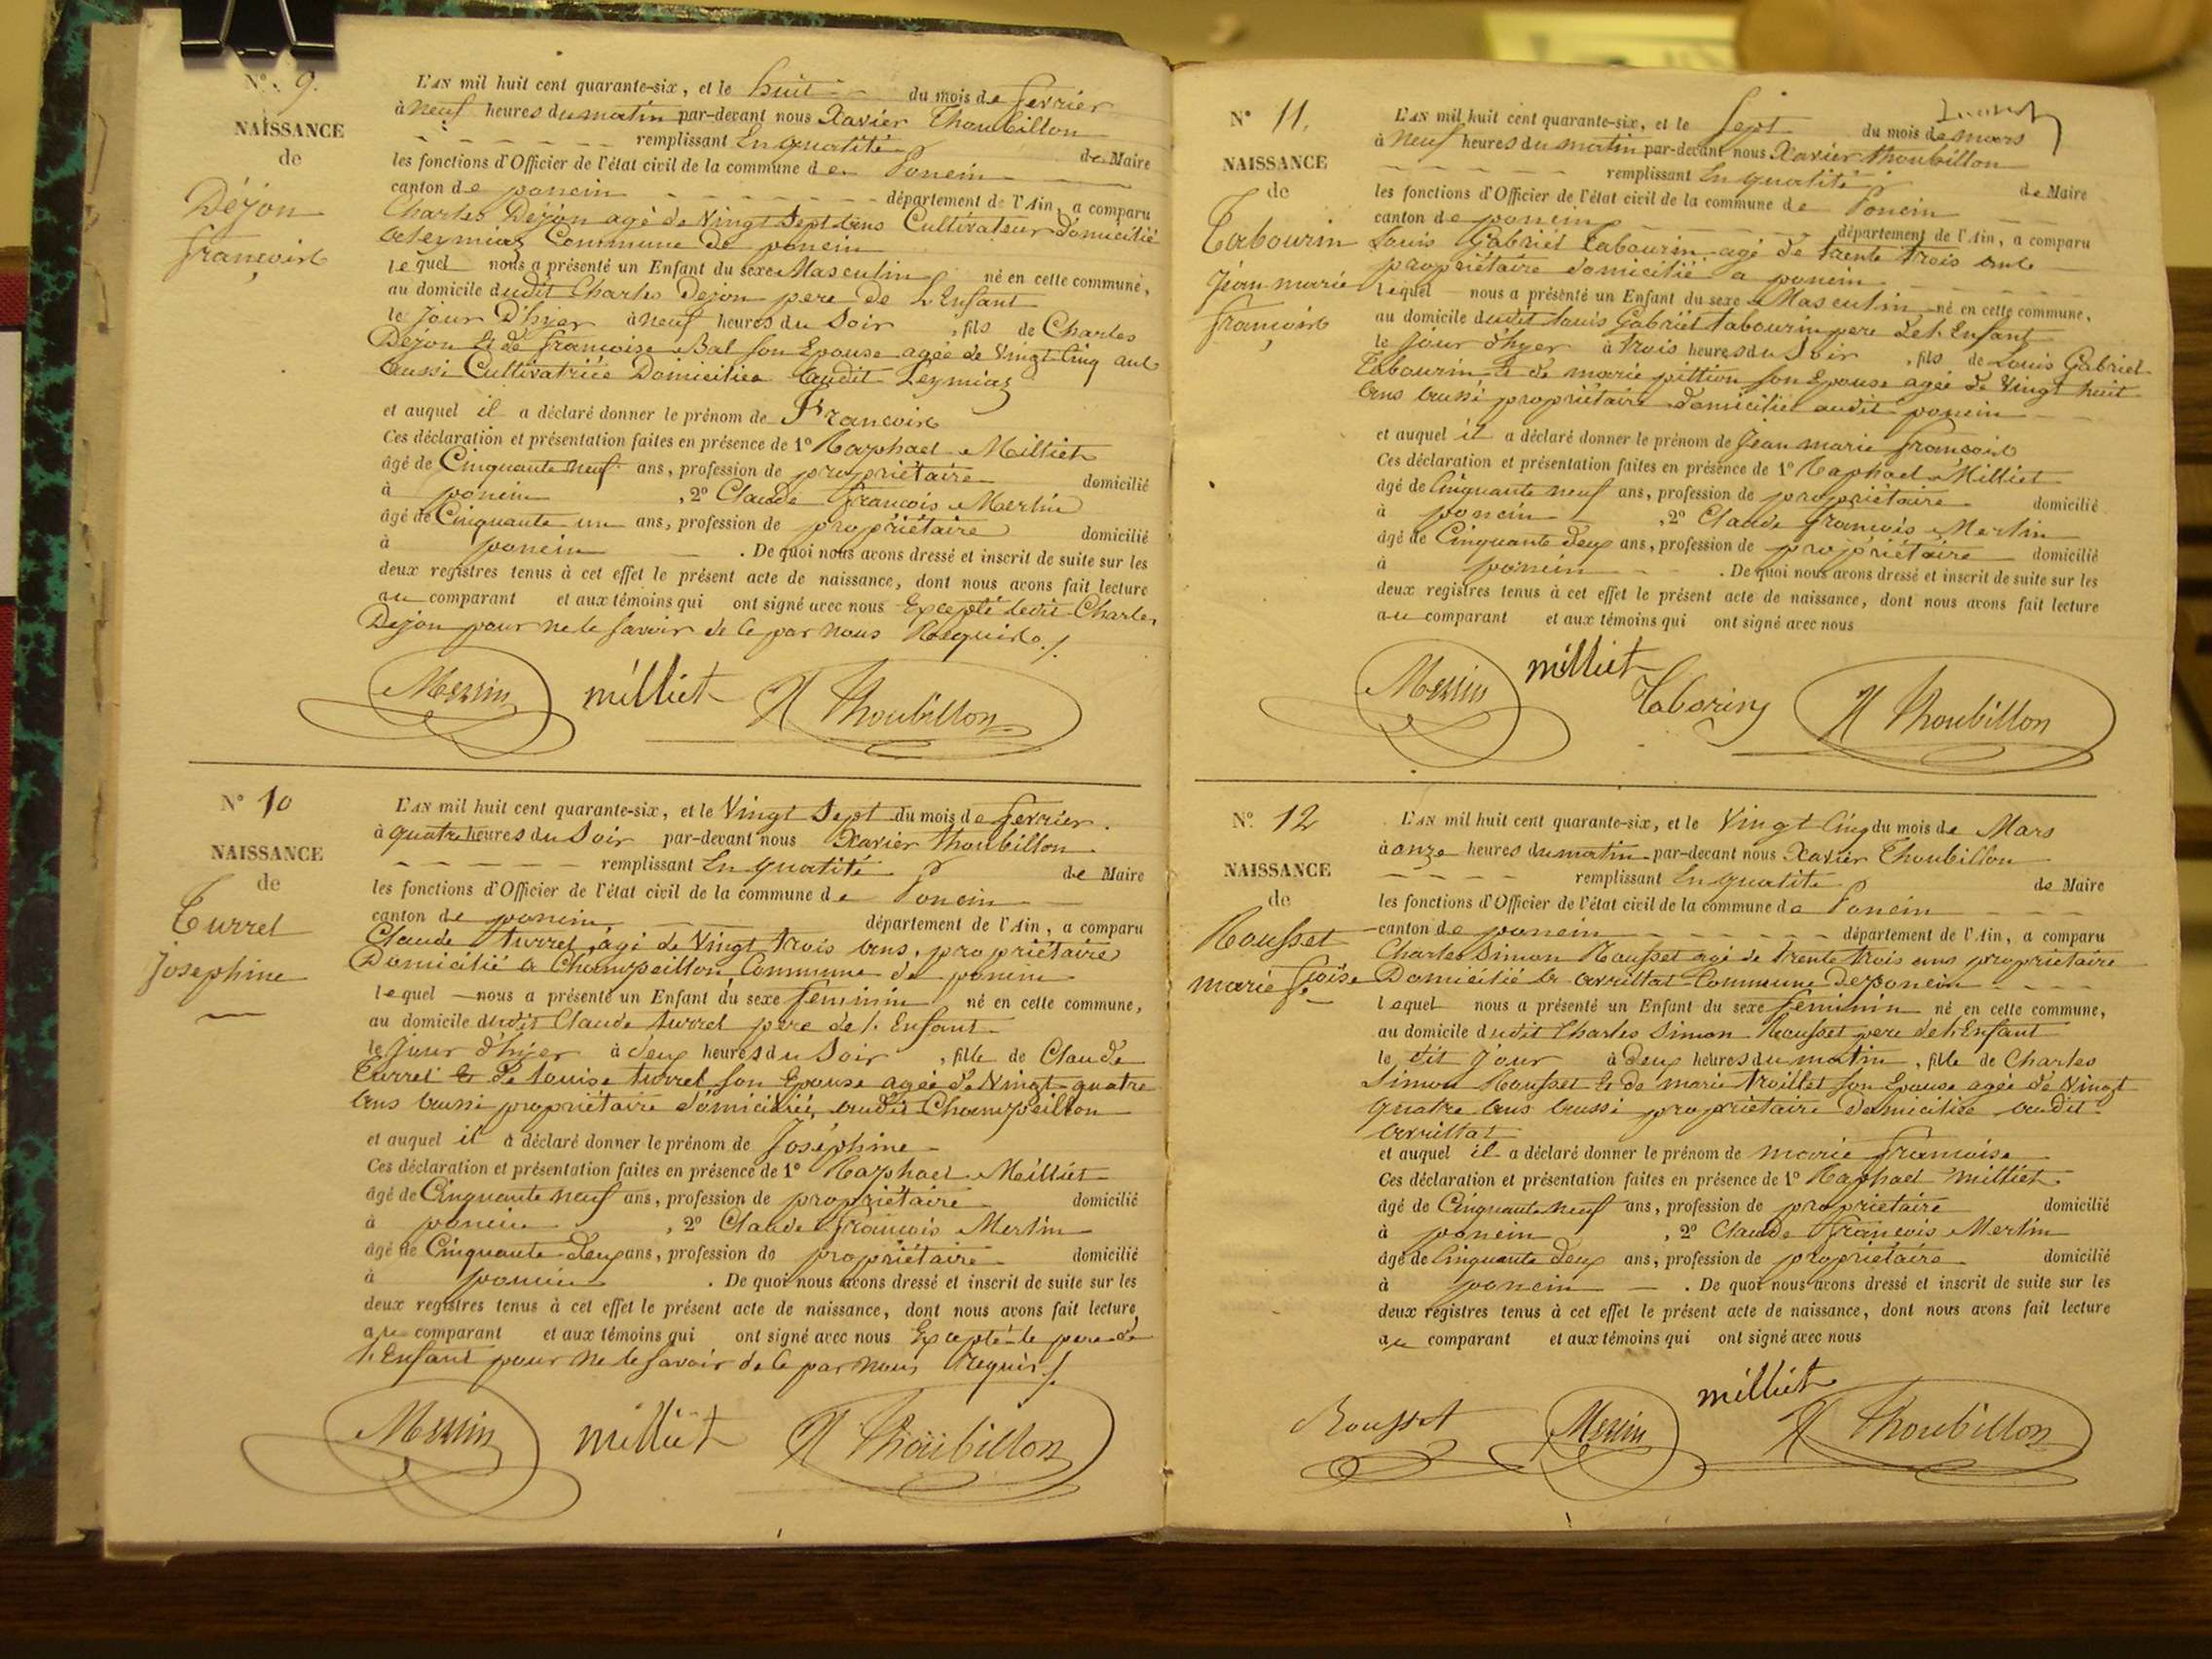 N° 9.
NAISSANCE
de
Déjon
françois
L'AN mil huit cent quarante-six, et le huit du mois de fevrier
à neuf heures du matin par-devant nous Xavier Thoubillon
remplissant En qualité de Maire
les fonctions d'Officier de l'état civil de la commune de Poncin
canton de poncin département de l'Ain, a comparu
Charles Déjon agé de Vingt Sept ans Cultivateur domicilié
a Leymiaz Commune de poncin
lequel nous a présenté un Enfant du sexe Masculin né en cette commune,
au domicile dudit Charles Dejon pere de L'Enfant
le jour D'hyer à neuf heures du Soir , fils de Charles
Dejon & de françoise Bal son Epouse agée de Vingt Cinq ans
aussi Cultivatrice Domiciliée audit Leymiaz
et auquel il a déclaré donner le prénom de François
Ces déclaration et présentation faites en présence de 1° Raphael Milliet
âgé de Cinquante neuf ans, profession de propriétaire domicilié
à poncin , 2° Claude françois Merlin
âgé de Cinquante un ans, profession de propriétaire domicilié
à poncin . De quoi nous avons dressé et inscrit de suite sur les
deux registres tenus à cet effet le présent acte de naissance, dont nous avons fait lecture
au comparant et aux témoins qui ont signé avec nous Excepté ledit Charles
Dejon pour ne le savoir de ce par nous Requis./.
Merlin milliet X Thoubillon
N° 10
NAISSANCE
de
Turrel
Josephine
L'AN mil huit cent quarante-six, et le Vingt Sept du mois de fevrier.
à quatre heures du Soir par-devant nous Xavier Thoubillon
remplissant En qualité de Maire
les fonctions d'Officier de l'état civil de la commune de Poncin
canton de poncin département de l'Ain, a comparu
Claude turrel, agé de Vingt trois ans, propriétaire
Domicilié a Champeillon Commune de poncin
lequel nous a présenté un Enfant du sexe féminin né en cette commune,
au domicile dudit Claude turrel pere de l'Enfant
le jour d'hyer à deux heures du Soir , fille de Claude
Turrel & De Louise turrel son Epouse agée de Vingt quatre
ans aussi propriétaire domiciliée audit Champeillon
et auquel il a déclaré donner le prénom de Joséphine
Ces déclaration et présentation faites en présence de 1° Raphael Milliet
âgé de Cinquante neuf ans, profession de propriétaire domicilié
à poncin , 2° Claude françois Merlin
âgé de Cinquante deux ans, profession de propriétaire domicilié
à poncin . De quoi nous avons dressé et inscrit de suite sur les
deux registres tenus à cet effet le présent acte de naissance, dont nous avons fait lecture
au comparant et aux témoins qui ont signé avec nous Excepté le pere de
l'Enfant pour ne le savoir de ce par nous Requis /.
Merlin milliet X Thoubillon
N° 11.
NAISSANCE
de
Tabourin
Jean marie
françois
L'AN mil huit cent quarante-six, et le Sept du mois de mars
à neuf heures du matin par-devant nous Xavier Thoubillon
remplissant En qualité de Maire
les fonctions d'Officier de l'état civil de la commune de Poncin
canton de poncin département de l'Ain, a comparu
Louis Gabriel Tabourin agé de trente trois ans
propriétaire domicilié a poncin
lequel nous a présenté un Enfant du sexe Masculin né en cette commune,
au domicile dudit Louis Gabriel tabourin pere de l'Enfant
le jour d'hyer à trois heures du Soir , fils de Louis Gabriel
Tabourin & de marie pittion son Epouse agée de Vingt huit
ans aussi propriétaire domiciliée audit poncin
et auquel il a déclaré donner le prénom de Jean marie françois
Ces déclaration et présentation faites en présence de 1° Raphael Milliet
âgé de Cinquante neuf ans, profession de propriétaire domicilié
à poncin , 2° Claude françois Merlin
âgé de Cinquante deux ans, profession de propriétaire domicilié
à poncin . De quoi nous avons dressé et inscrit de suite sur les
deux registres tenus à cet effet le présent acte de naissance, dont nous avons fait lecture
au comparant et aux témoins qui ont signé avec nous
Merlin milliet Taborin X Thoubillon
N° 12
NAISSANCE
de
Rousset
marie f.çoise
L'AN mil huit cent quarante-six, et le Vingt Cinq du mois de Mars
à onze heures du matin par-devant nous Xavier Thoubillon
remplissant En qualité de Maire
les fonctions d'Officier de l'état civil de la commune de Poncin
canton de poncin département de l'Ain, a comparu
Charles Simon Rousset agé de trente trois ans propriétaire
Domicilié a avrillat Commune de poncin
lequel nous a présenté un Enfant du sexe féminin né en cette commune,
au domicile dudit Charles Simon Rousset pere de l'Enfant
le dit jour à deux heures du matin , fille de Charles
Simon Rousset & de marie troillet son Epouse agée de Vingt
quatre ans aussi propriétaire Domiciliée audit
avrillat
et auquel il a déclaré donner le prénom de marie françoise
Ces déclaration et présentation faites en présence de 1° Raphael milliet
âgé de Cinquante neuf ans, profession de propriétaire domicilié
à poncin , 2° Claude François Merlin
âgé de Cinquante deux ans, profession de propriétaire domicilié
à poncin . De quoi nous avons dressé et inscrit de suite sur les
deux registres tenus à cet effet le présent acte de naissance, dont nous avons fait lecture
au comparant et aux témoins qui ont signé avec nous
Rousset Merlin milliet X Thoubillon